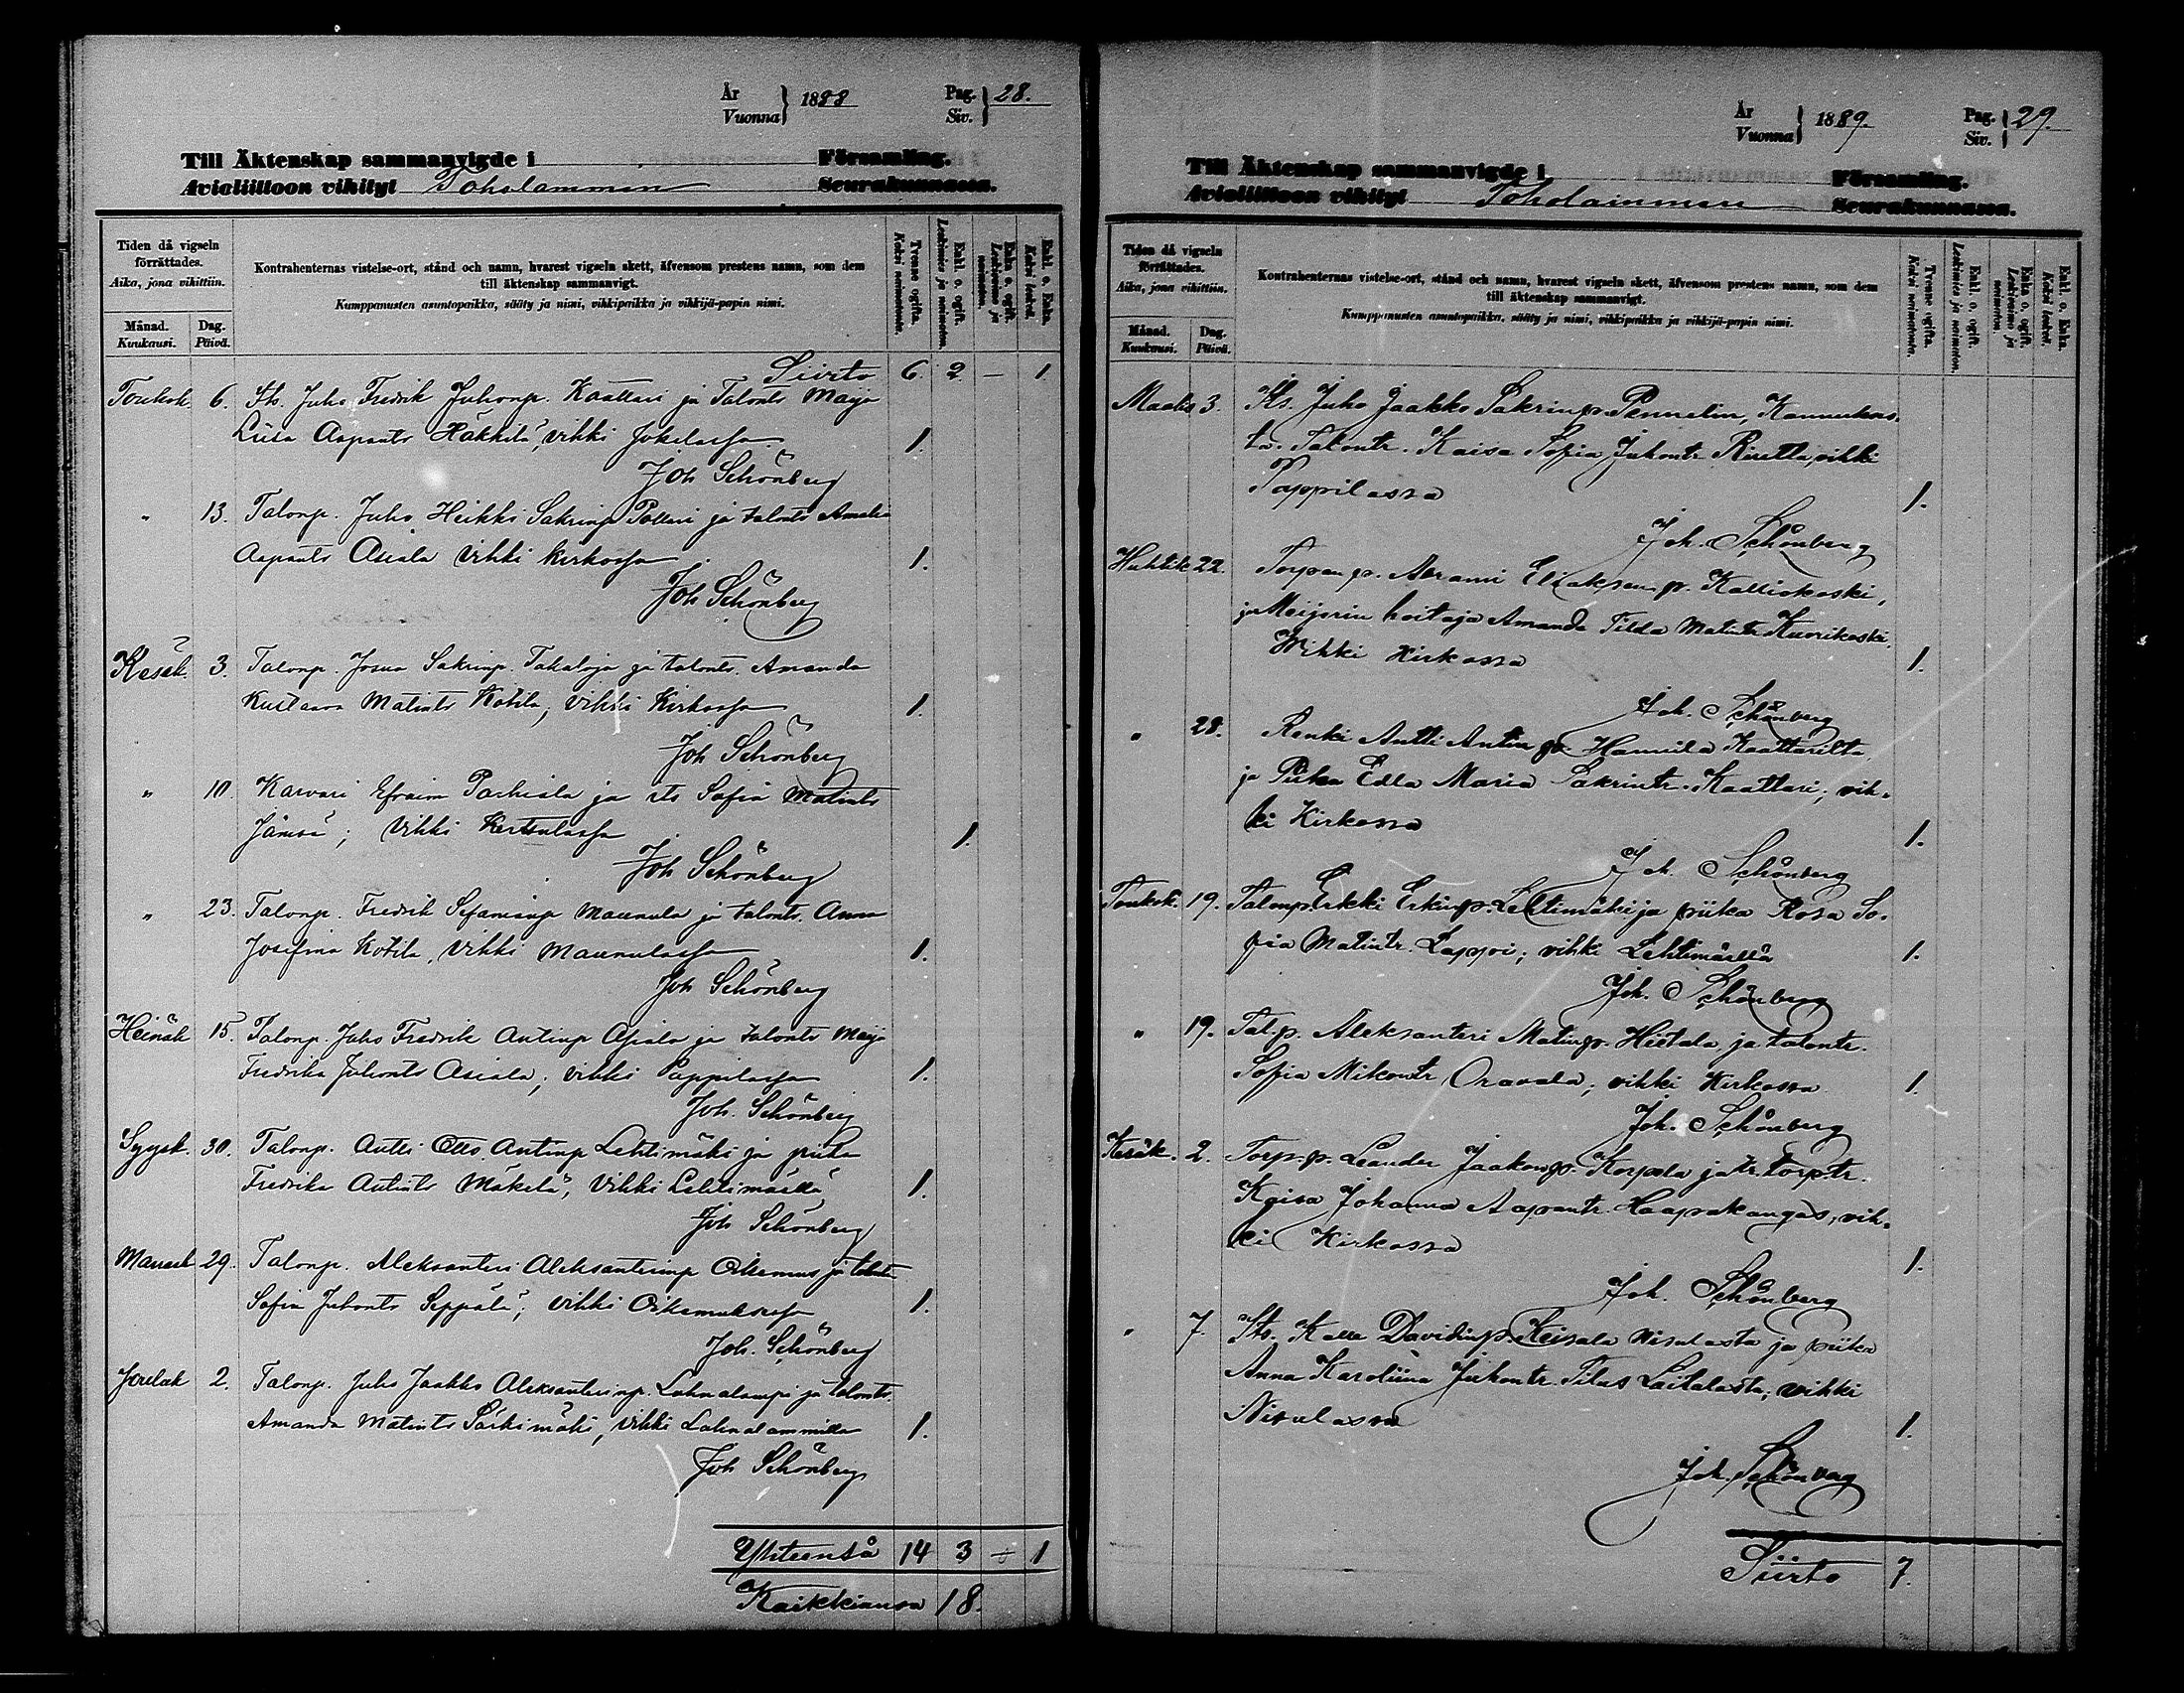 År
Vuonna } 1888
Pag.
Siv. } 28.
Till Äktenskap sammanvigde i Församling.
Avioliittoon vihityt Toholammin Seurakunnassa.
Tiden då vigseln förrättades.
Aika, jona vihittiin.
Månad.
Kuukausi.
Dag.
Päivä.
Kontrahenternas vistelse-ort, stånd och namn, hvarest vigseln skett, äfvensom prestens namn, som dem
till äktenskap sammanvigt.
Kumppanusten asuntopaikka, sääty ja nimi, vihkipaikka ja vihkijä-papin nimi.
Tvenne ogifta.
Kaksi naimatonta.
Enkl. o. ogift.
Leskimies ja naimaton.
Enka o. ogift.
Leskivaimo ja naimaton.
Enkl. o. Enka.
Kaksi leskeä.
Siirto 6. 2. — 1
Toukok. 6. Its. Juho Fredrik Juhonp. Kaattari ja Talonts Maija
Liisa Aapants Häkkilä, vihki Jokelassa 1.
Joh Schönberg
" 13. Talonp. Juho Heikki Sakrinp Pollari ja talonts Amalia
Aapants Asiala vihki kirkossa 1.
Joh Schönberg
Kesäk. 3. Talonp. Josua Sakrinp. Takaloja ja talonts. Amanda
Kustaava Matints Kotila, vihki Kirkossa 1.
Joh Schönberg
" 10. Karvari Efraim Parhiala ja its Sofia Matints
Jämsä; vihki Kertulassa 1.
Joh Schönberg
" 23. Talonp. Fredrik Sefanianp Maunula ja talonts. Anna
Josefina Kotila, vihki Maunulassa 1.
Joh Schönberg
Heinäk 15. Talonp. Juho Fredrik Antinp Asiala ja talonts Maija
Fredrika Juhonts Asiala; vihki Pappilassa 1.
Joh. Schönberg
Syysk. 30. Talonp. Antti Otto Antinp Lehtimäki ja piika
Fredrika Antints Mäkelä, vihki Lehtimäellä 1.
Joh Schönberg
Marrask 29. Talonp. Aleksanteri Aleksanterinp Oikemus ja talonts
Sofia Juhonts Seppälä; vihki Oikemuksessa 1.
Joh. Schönberg
Joulak 2. Talonp. Juho Jaakko Aleksanterinp. Lahnalampi ja talonts.
Amanda Matints Särkimäki, vihki Lahnalammilla 1.
Joh Schönberg
Yhteensä 14 3 ÷ 1
Kaikkiansa 18.
År
Vuonna } 1889.
Pag.
Siv. } 29.
Till Äktenskap sammanvigde i Församling.
Avioliittoon vihityt Toholammin Seurakunnassa.
Tiden då vigseln förrättades.
Aika, jona vihittiin.
Månad.
Kuukausi.
Dag.
Päivä.
Kontrahenternas vistelse-ort, stånd och namn, hvarest vigseln skett, äfvensom prestens namn, som dem
till äktenskap sammanvigt.
Kumppanusten asuntopaikka, sääty ja nimi, vihkipaikka ja vihkijä-papin nimi.
Tvenne ogifta.
Kaksi naimatonta.
Enkl. o. ogift.
Leskimies ja naimaton.
Enka o. ogift.
Leskivaimo ja naimaton.
Enkl. o. Enka.
Kaksi leskeä.
Maalis 3. Its. Juho Jaakko Sakrinp. Pennelin, Kannukses-
ta. Talontr. Kaisa Sofia Juhontr Rinetta, vihki
Pappilassa 1.
Joh. Schönberg
Huhtik 22. Torpanp. Abrami Eliaksenp. Kalliokoski,
ja Meijerin hoitaja Amanda Tilda Matintr Kuorikoski.
Wihki Kirkossa 1.
Joh. Schönberg
" 28. Renki Antti Antinp. Hannila Kaattarilta,
ja Piika Edla Maria Sakrintr. Kaattari; vih-
ki Kirkossa 1.
Joh. Schönberg
Toukok. 19. Talonp. Erkki Erkinp. Lehtimäki ja piika Rosa So-
fia Matintr. Lappi; vihki Lehtimäellä 1.
Joh. Schönberg
" 19. Tal.p. Aleksanteri Matinp. Hietala ja talontr.
Sofia Mikontr Oravala; vihki Kirkossa 1.
Joh. Schönberg
Kesäk. 2. Torp.p. Leander Jaakonp. Korpela ja tr. torp.tr.
Kaisa Johanna Aapontr. Haapakangas, vih-
ki Kirkossa 1.
Joh. Schönberg
" 7. Its. Kalle Davidinp. Keisala Nisulasta ja piika
Anna Karoliina Juhontr. Tilus Laitalasta; vihki
Nisulassa 1.
Joh. Schönberg
Siirto 7.